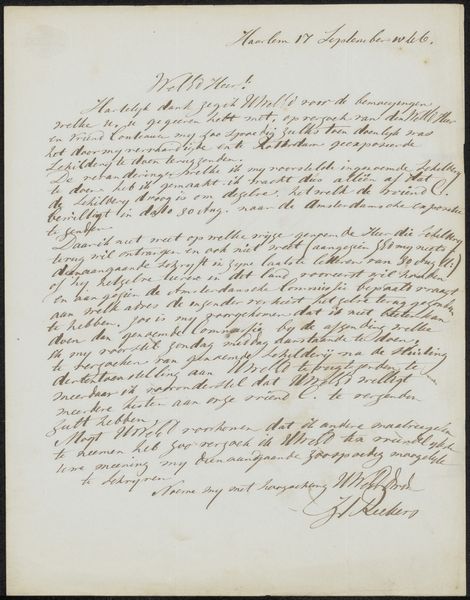 Haarlem 17 September
WelEd Heer!
Hartelijk dank zeg ik UWelEd voor de bemoeijingen
welke u gegeven hebt met, op verzoek van den WelEd Heer
en vriend my zoo spoedig zulks toen doenlyk was
het door my vervaardigde en te Rotterdam geexposeerde
Schildery te doen terugzenden.
De veranderingen welke ik my voorstelde in genoemde Schildery
te doen heb ik gemaakt, ik wacht dus alleen af dat
de Schildery droog is om dezelve, het welk de vriend C.
bewilligt in dato 30 Aug. naar de Amsterdamsche expositie
te zenden.
Daar ik niet weet op welke wyze genoemde Heer die Schildery
terug wil ontvangen en ook niet weet aangezien ZEd my niets
dienaangaande schryft in zyne laatste letteren van 30 Aug
of hy hetzelve in dit land wil houden
en aangezien de Amsterdamsche Commissie bepaalt
aan welk adres de inzender verkiest het zelve terug gezonden
te hebben, zoo is my voorgekomen dat ik niet beter kan
doen dan genoemde Commissie by de afzending welke
ik my voorstel zondag middag aanstaande te doen,
te verzoeken van genoemde Schildery na de sluiting
der tentoonstelling aan UWelEd te
meer daar ik veronderstel dat UWelEd welligt
meerdere kisten aan onze vriend C. te verzenden
zult hebben.
Mogt UWelEd voorkomen dat ik andere maatregelen
te nemen heb zoo verzoek ik UWelEd vriendelyk
uwe meening my dienaangaande zoo spoedig mogelyk
te schryven.
Noeme my met hoogachting